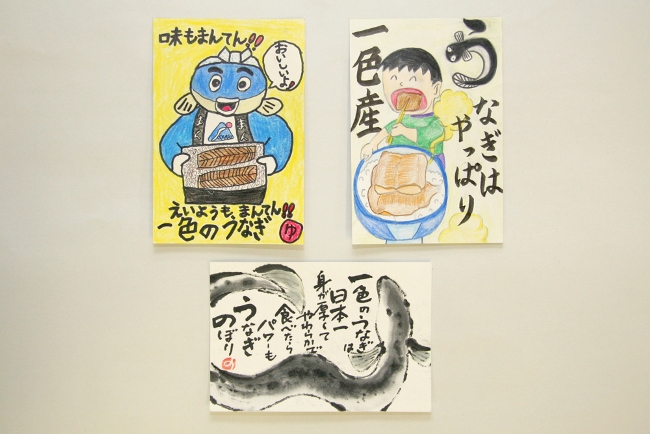 味もまんてん!!
おいしいよ!
えいようも、まんてん!!
一色のうなぎ
ゆ
うなぎは
やっぱり
一色産
一色のうなぎは
日本一
身が厚くて
やわらかで
食べたら
パワーも
うなぎ
のぼり